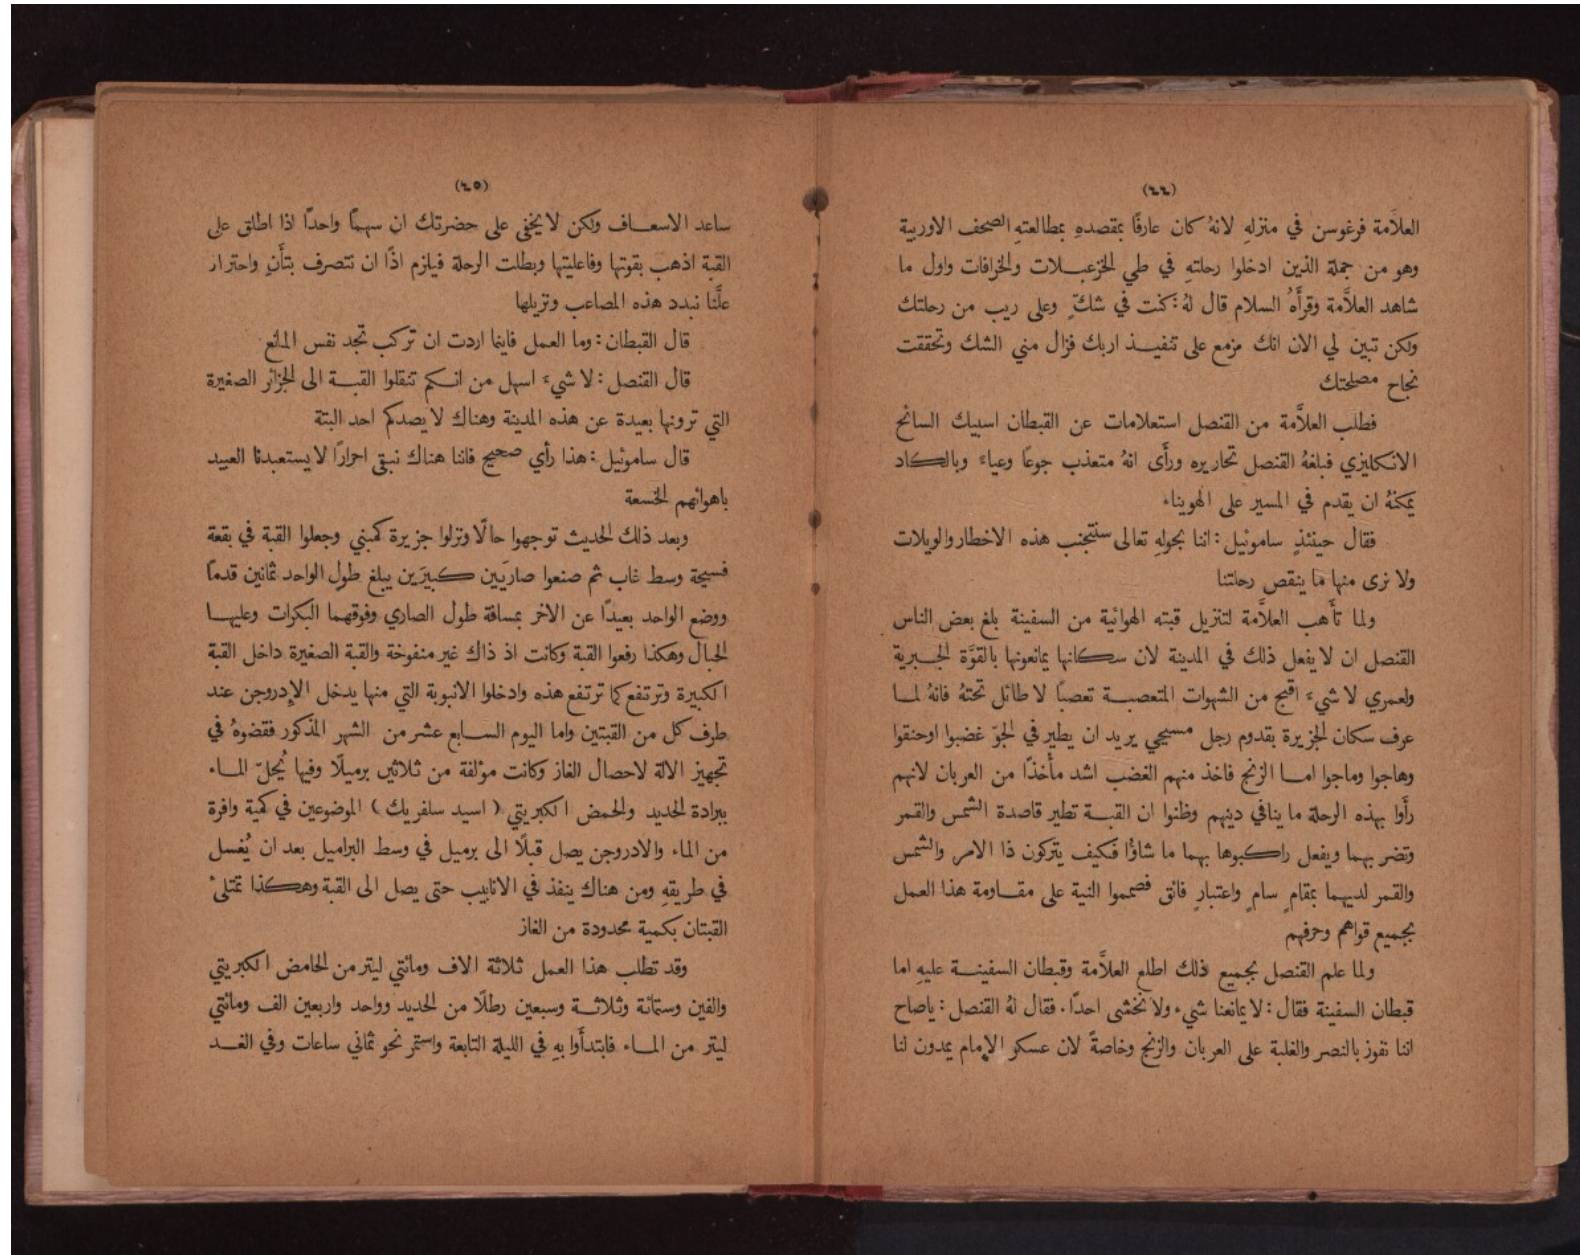 (٤٤)
العلاَّمة فرغوسن في منزلهِ لانهُ كان عارفًا بمقصدهِ بمطالعتهِ الصحف الاوربية
وهو من جملة الذين ادخلوا رحلتهِ في طي الخزعبلات والخرافات واول ما
شاهد العلاَّمة وقرأَهُ السلام قال لهُ : كنت في شكٍّ وعلى ريب من رحلتك
ولكن تبين لي الان انك مزمع على تنفيذ اربك فزال مني الشك وتحققت
نجاح مصلحتك
فطلب العلاَّمة من القنصل استعلامات عن القبطان اسبيك السائح
الانكليزي فبلغهُ القنصل تحاريره ورأَى انهُ متعذب جوعًا وعياءً وبالكاد
يمكنهُ ان يقدم في المسير على الهويناء
فقال حينئذٍ ساموئيل : اننا بحولهِ تعالى سنتجنب هذه الاخطار والويلات
ولا نرى منها ما ينقص رحلتنا
ولما تأَهب العلاَّمة لتنزيل قبته الهوائية من السفينة بلغ بعض الناس
القنصل ان لا يفعل ذلك في المدينة لان سكانها يمانعونها بالقوَّة الجبرية
ولعمري لا شيءَ اقبح من الشهوات المتعصبة تعصبًا لا طائل تحتهُ فانهُ لما
عرف سكان الجزيرة بقدوم رجل مسيحي يريد ان يطير في الجوّ غضبوا اوحنقوا
وهاجوا وماجوا اما الزنج فاخذ منهم الغضب اشد مأخذًا من العربان لانهم
رأَوا بهذه الرحلة ما ينافي دينهم وظنوا ان القبة تطير قاصدة الشمس والقمر
وتضر بهما ويفعل راكبوها بهما ما شاؤا فكيف يتركون ذا الامر والشمس
والقمر لديهما بمقامٍ سامٍ واعتبارٍ فائق فصمموا النية على مقاومة هذا العمل
بجميع قواهم وحرفهم
ولما علم القنصل بجميع ذلك اطلع العلاَّمة وقبطان السفينة عليهِ اما
قبطان السفينة فقال : لا يمانعنا شيء ولا نخشى احدًا . فقال لهُ القنصل : ياصاح
اننا نفوز بالنصر والغلبة على العربان والزنج وخاصةً لان عسكر الإمام يمدون لنا
(٤٥)
ساعد الاسعاف ولكن لا يخفى على حضرتك ان سهمًا واحدًا اذا اطلق على
القبة اذهب بقوتها وفاعليتها وبطلت الرحلة فيلزم اذًا ان نتصرف بتأَنٍ واحتراز
علَّنا نبدد هذه المصاعب ونزيلها
قال القبطان : وما العمل فاينما اردت ان تركب تجد نفس المانع
قال القنصل : لا شيءَ اسهل من انكم تنقلوا القبة الى الجزائر الصغيرة
التي ترونها بعيدة عن هذه المدينة وهناك لا يصدكم احد البتة
قال ساموئيل : هذا رأي صحيح فاننا هناك نبقى احرارًا لا يستعبدنا العبيد
باهوائهم الخسعة
وبعد ذلك الحديث توجهوا حالًا ونزلوا جزيرة كمبني وجعلوا القبة في بقعة
فسيحة وسط غاب ثم صنعوا صاريَين كبيرَين يبلغ طول الواحد ثمانين قدمًا
ووضع الواحد بعيدًا عن الاخر بمسافة طول الصاري وفوقهما البكرات وعليها
الحبال وهكذا رفعوا القبة وكانت اذ ذاك غير منفوخة والقبة الصغيرة داخل القبة
الكبيرة وترتفع كما ترتفع هذه وادخلوا الانبوبة التي منها يدخل الإدروجن عند
طرف كل من القبتين واما اليوم السابع عشر من الشهر المذكور فقضوهُ في
تجهيز الالة لاحصال الغاز وكانت مؤلفة من ثلاثين برميلًا وفيها يُحلّ الماء
ببرادة الحديد والحمض الكبريتي ( اسيد سلفريك ) الموضوعين في كمية وافرة
من الماء والادروجن يصل قبلًا الى برميل في وسط البراميل بعد ان يُغسل
في طريقهِ ومن هناك ينفذ في الانابيب حتى يصل الى القبة وهكذا تمتلئ
القبتان بكمية محدودة من الغاز
وقد تطلب هذا العمل ثلاثة الاف ومائتي ليتر من الحامض الكبريتي
والفين وستمائة وثلاثة وسبعين رطلًا من الحديد وواحد واربعين الف ومائتي
ليتر من الماء فابتدأَوا بهِ في الليلة التابعة واستمر نحو ثماني ساعات وفي الغد